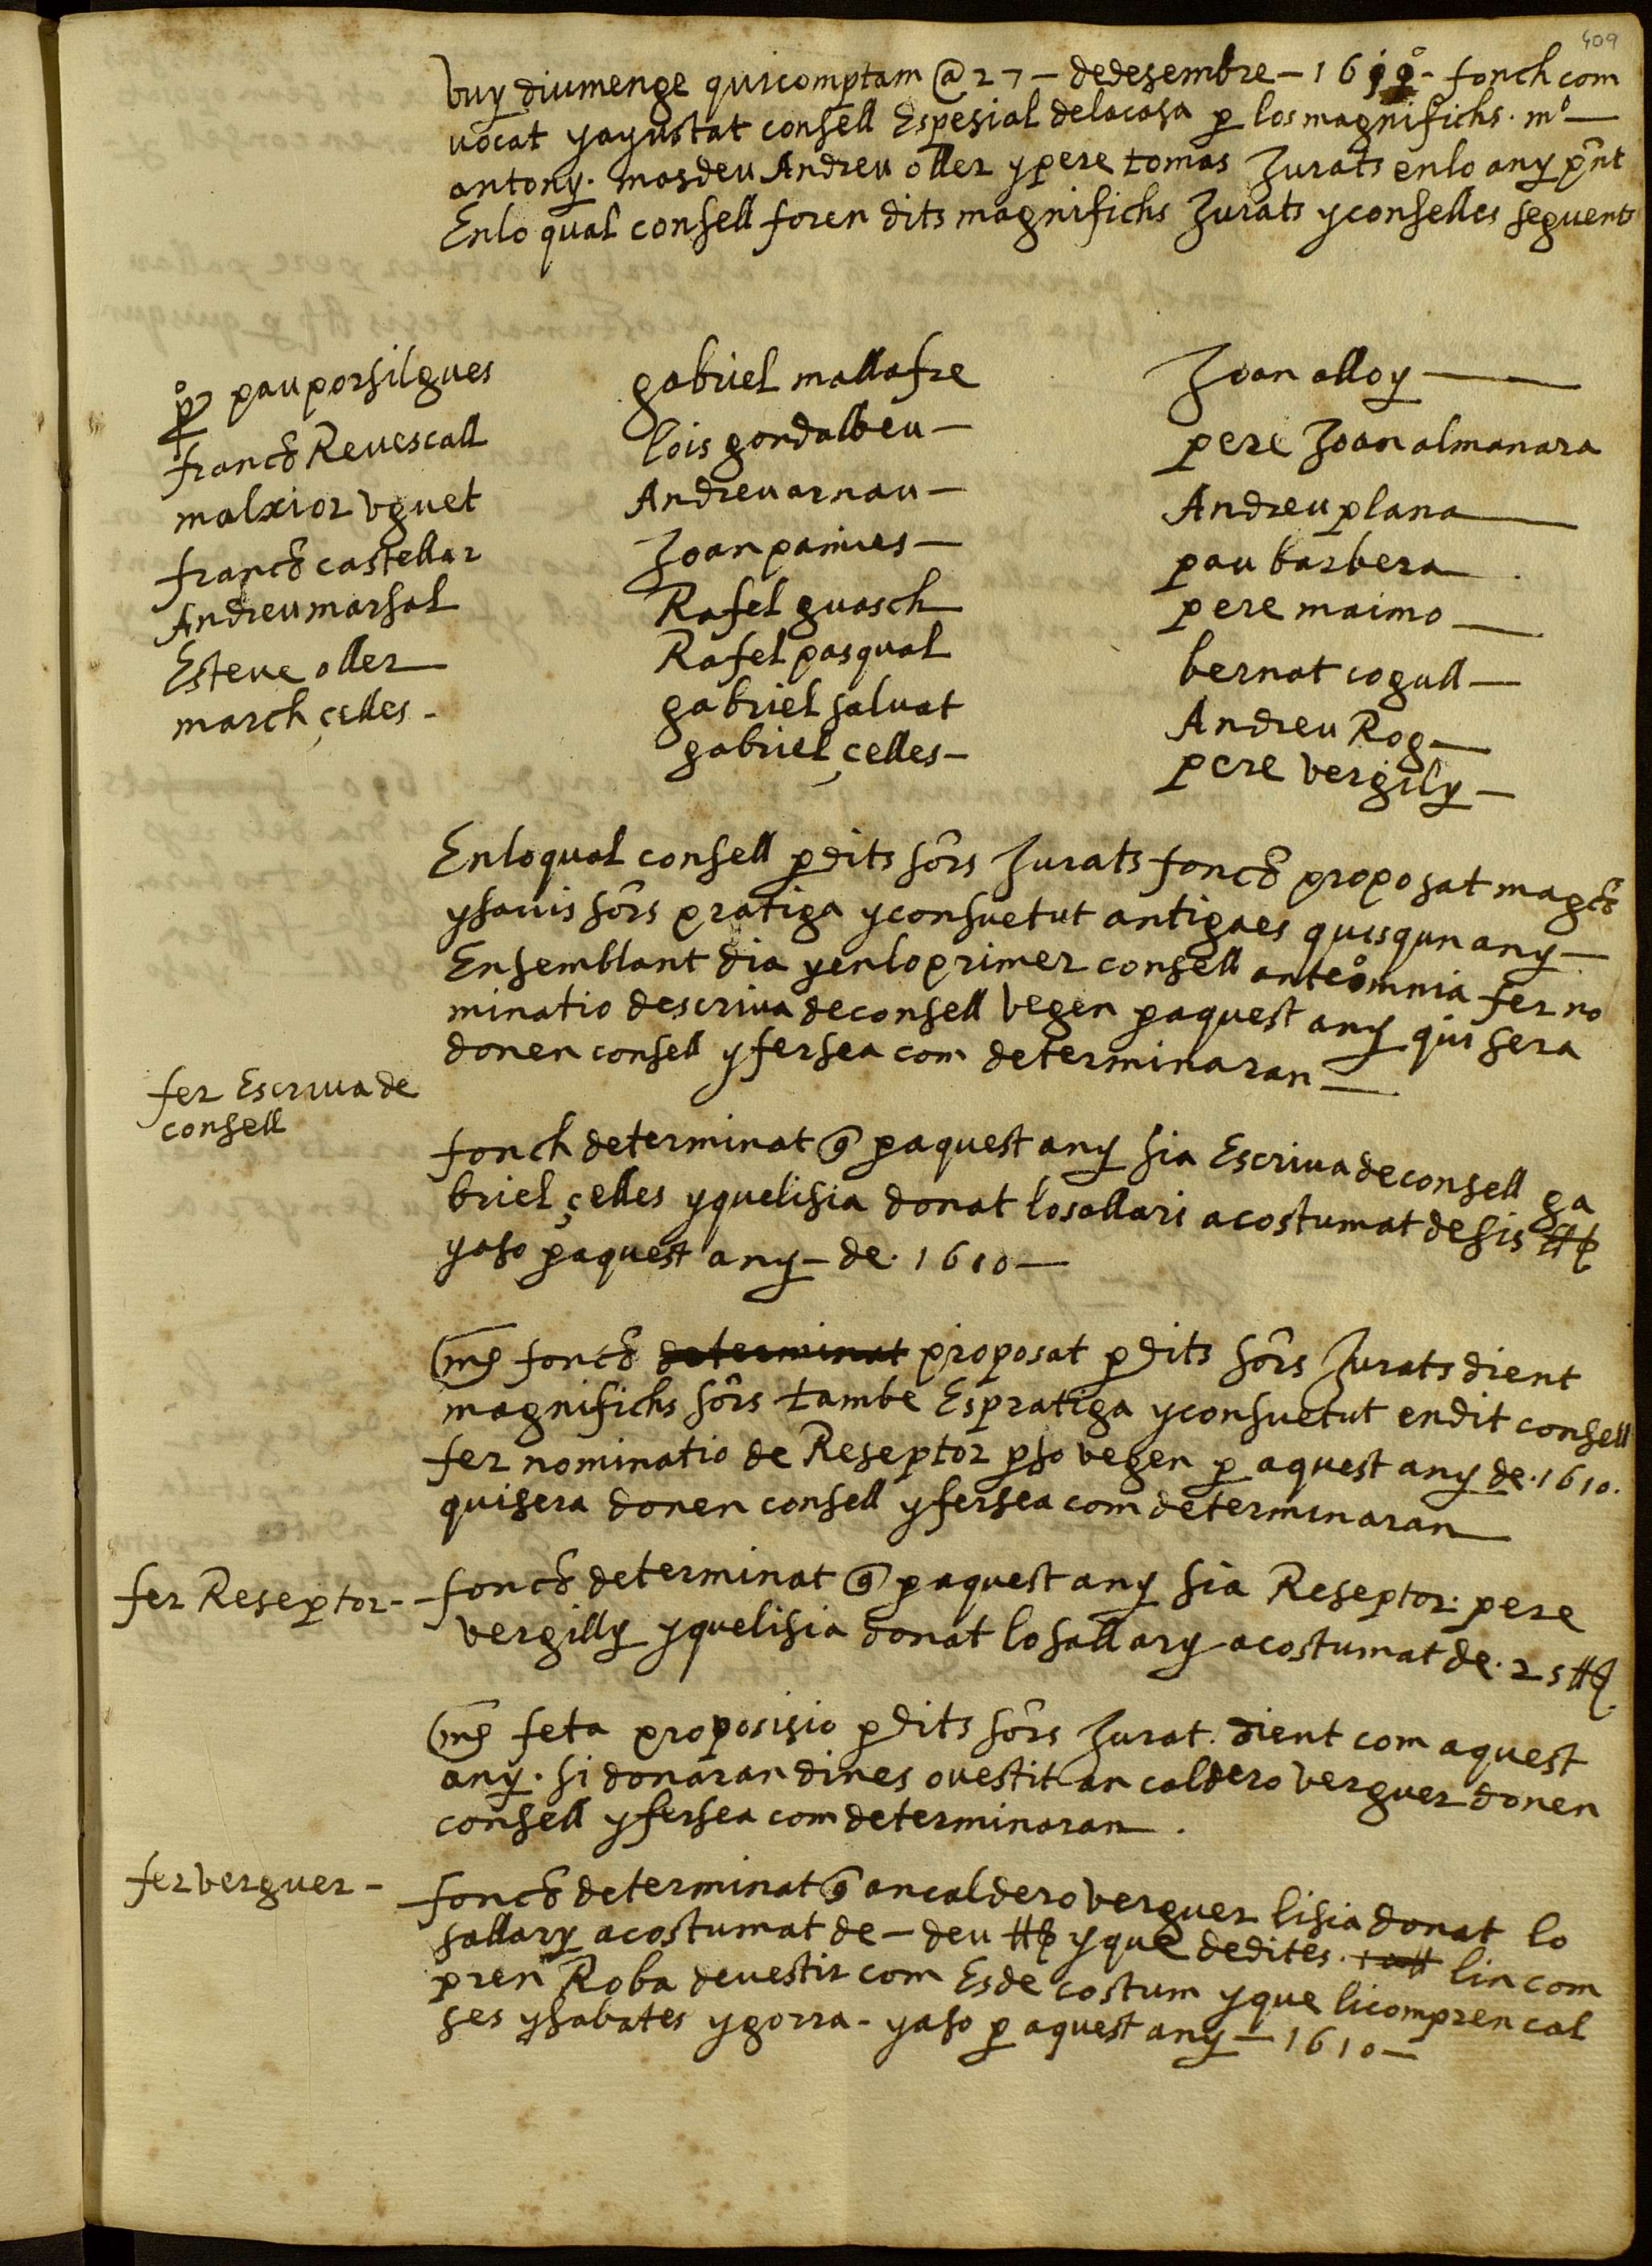 409
vuy diumenge quicomptam @ 27 – dedesembre – 1610 – fonch com
vocat yajustat consell Espesial delacasa p los magnifichs . m°
antony . masdeu Andreu oller ypere tomas Jurats enlo any pnt
Enlo qual consell foren dits magnifichs Jurats yconselles seguents
p° pau porsilgues
franco Revescall
malxior vguet
franco castellar
Andreu marsal
Esteve oller
march çelles -
gabriel mallafre
lois gondalbeu –
Andreu arnau –
Joan pamies –
Rafel guasch
Rafel pasqual
gabriel salvat
gabriel çelles –
Joan alloy
pere Joan almanara
Andreu plana
pau barbera
pere maimo
bernat cogull –
Andreu Rog
pere vergily –
Enloqual consell pdits sors Jurats fonch proposat magchs
ysavis sors pratiga yconsuetut antigaes quisqun any –
Ensemblant dia yenloprimer consell anteomnia fer no
minatio descriva deconsell vegen paquest any qui sera
donen consell yfersea com determinaran –
fer Escriva de
consell
fonch determinat q paquest any sia Escriva deconsell ga
briel çelles yquelisia donat losallari acostumat desis ₶
yaso paquest any – de . 1610 –
Ims fonch determinat proposat pdits sors Jurats dient
magnifichs sors tambe Espratiga yconsuetut endit consell
fer nominatio de Reseptor pso vegen p aquest any de . 1610.
quisera donen consell yfersea com determinaran
fer Reseptor -
fonch determinat q paquest any sia Reseptor . pere
vergilly yquelisia donat losallary acostumat de . 25 ₶
Ims feta proposisio pdits sors Jurat . dient com aquest
any . si donaran dines ovestit an caldero verguer donen
consell yfersea com determinaran .
fer verguer –
fonch determinat q ancaldero verguer lisia donat lo
sallary acostumat de – deu ₶ yque dedites . 10₶ lin com
pren Roba devestir com Esde costum yque licomprencal
ses ysabates ygorra - yaso p aquest any – 1610 –